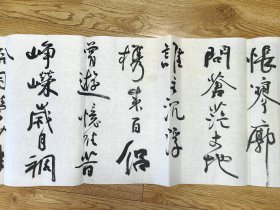 悵寥廓
問蒼茫大地
誰主沉浮
携来百侣
曾遊憶往昔
崢嶸歲月稠